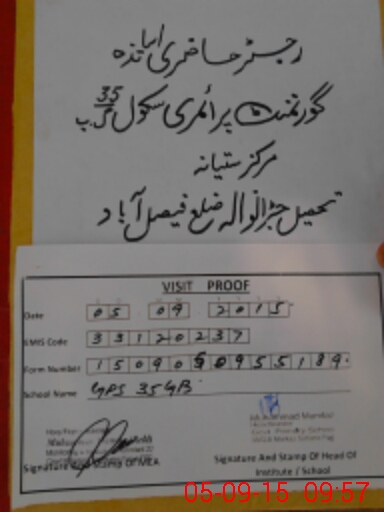 رجسٹر حاضری اساتذہ
گورنمنٹ پرائمری سکول 35 گ ب
مرکز ستیانہ
تحصیل جڑانوالہ ضلع فیصل آباد
VISIT PROOF
Date 05 09 2015
EMIS Code 33120237
Form Number
School Name GPS 35 GB
Signature And Stamp Of MEA
Signature And Stamp Of Head Of
Institute / School
05-09-15 09:57